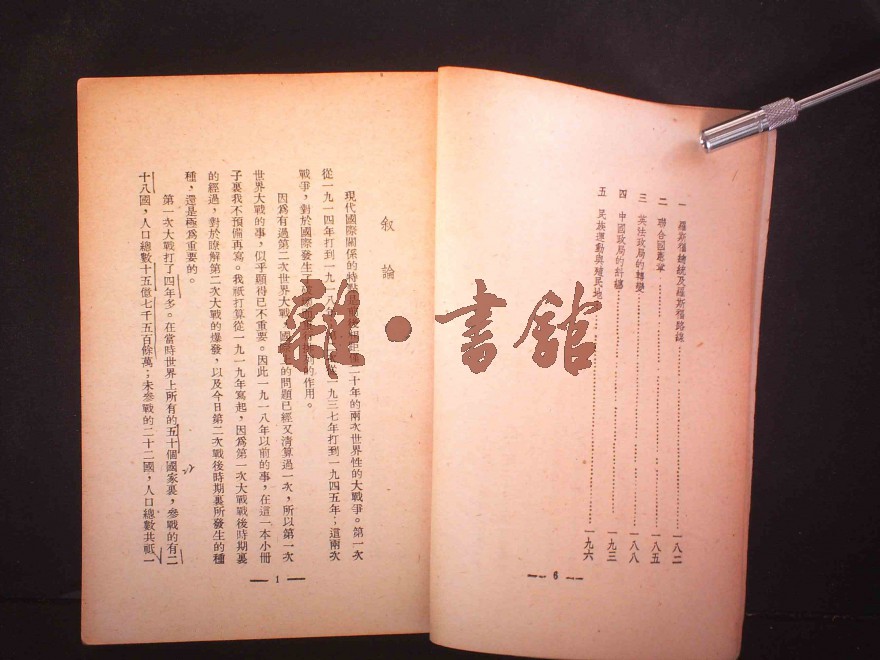 一 羅斯福總統及羅斯福路線 一八二
二 聯合國憲章 一八五
三 英法政局的轉變 一八八
四 中國政局的糾纏 一九三
五 民族運動與殖民地 一九六
6
敘論
現代國際關係的特點 前後 二十年的兩次世界性的大戰爭。第一次
從一九一四年打到一九一八 一九三七年打到一九四五年；這兩次
戰爭，對於國際發生了 的作用。
因為有過第二次世界大戰，國 的問題已經又清算過一次，所以第一次
世界大戰的事，似乎顯得已不重要。因此一九一八年以前的事，在這一本小冊
子裏我不預備再寫。我祇打算從一九一九年寫起，因為第一次大戰戰後時期裏
的經過，對於瞭解第二次大戰的爆發，以及今日第二次戰後時期裏所發生的種
種，還是極為重要的。
第一次大戰打了四年多。在當時世界上所有的五十個國家裏，參戰的有二
十八國，人口總數十五億七千五百餘萬；未參戰的二十二國，人口總數共祇一
1
雜·書館